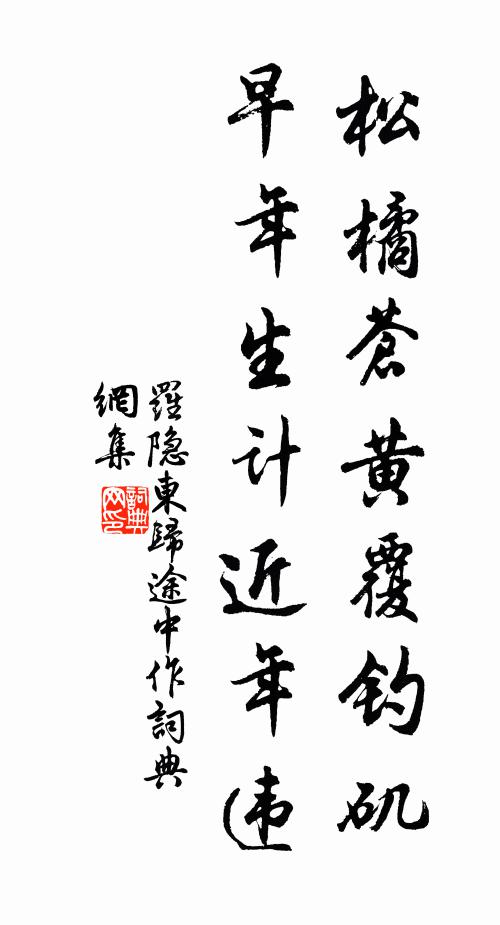 松橘蒼黄覆钓矶
早年生计近年违
羅隐東歸途中作詞典
網集
詞典网印